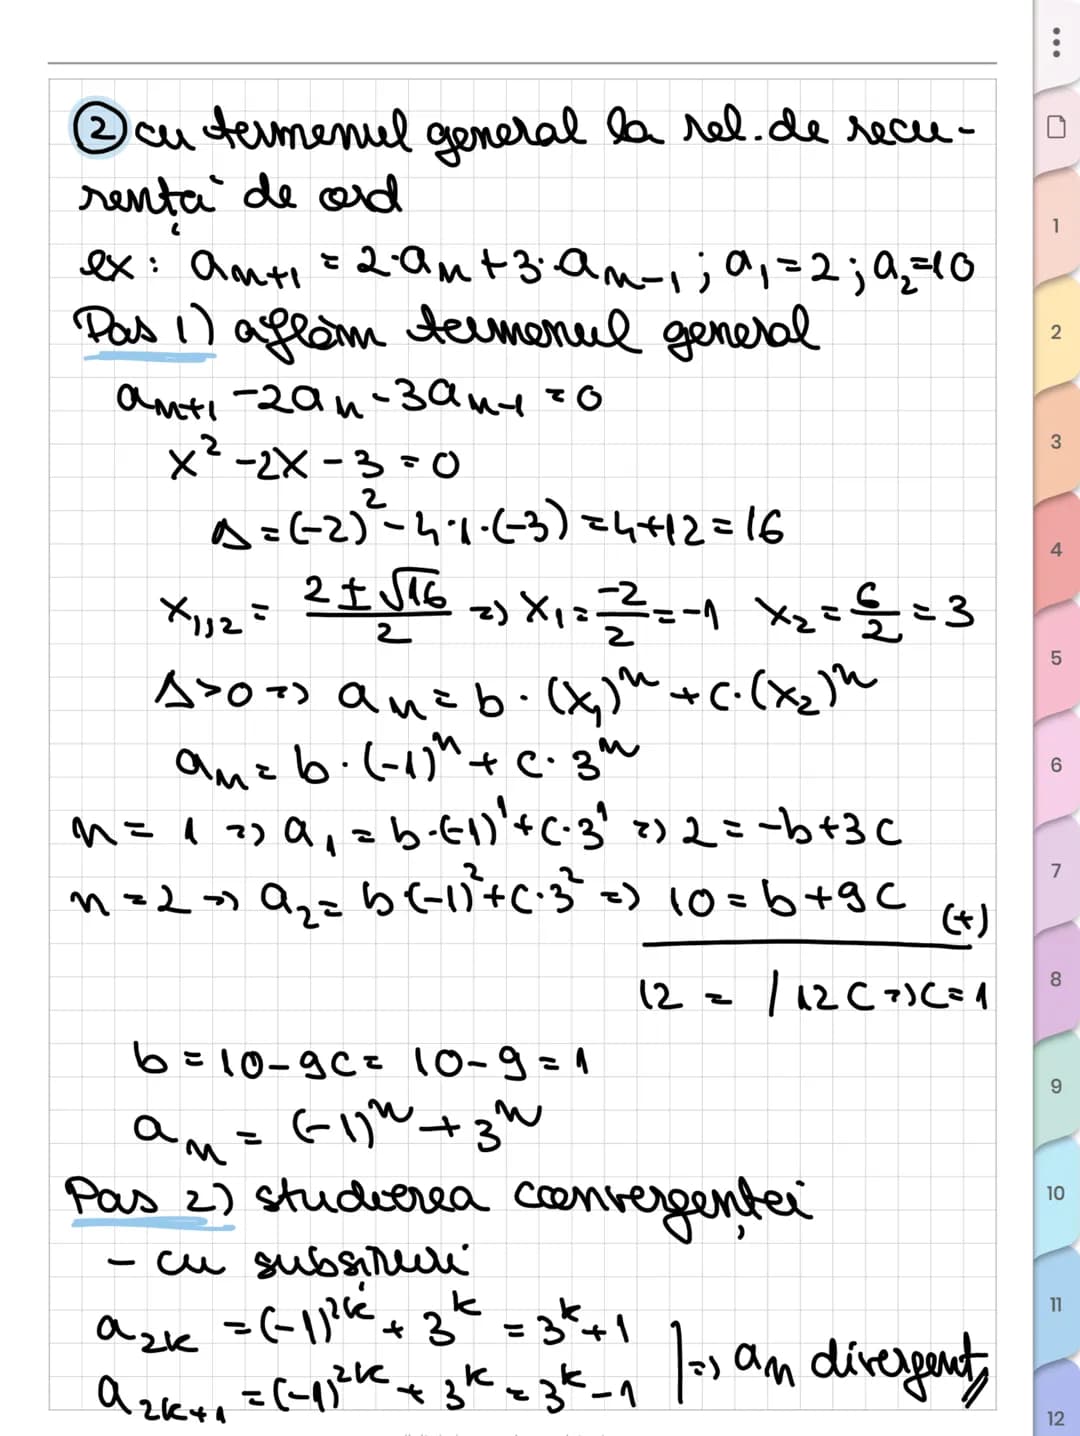 ② cu termenul general la rel. de recu-
rență de ord
ex: aₙ₊₁ = 2·aₙ + 3·aₙ₋₁ ; a₁ = 2 ; a₂ = 10
Pas 1) aflăm termenul general
aₙ₊₁ - 2aₙ - 3aₙ₋₁ = 0
x² - 2x - 3 = 0
Δ = (-2)² - 4·1·(-3) = 4 + 12 = 16
x₁,₂ = (2 ± √16)/2 => x₁ = -2/2 = -1 x₂ = 6/2 = 3
Δ > 0 => aₙ = b·(x₁)ⁿ + c·(x₂)ⁿ
aₙ = b·(-1)ⁿ + c·3ⁿ
n = 1 => a₁ = b·(-1)¹ + c·3¹ => 2 = -b + 3c
n = 2 => a₂ = b(-1)² + c·3² => 10 = b + 9c (+)
12 = / 12c => c = 1
b = 10 - 9c = 10 - 9 = 1
aₙ = (-1)ⁿ + 3ⁿ
Pas 2) studierea convergenței
- cu subșiruri
a₂ₖ = (-1)²ᵏ + 3ᵏ = 3ᵏ + 1
a₂ₖ₊₁ = (-1)²ᵏ + 3ᵏ = 3ᵏ - 1 | => aₙ divergent
1
2
3
4
5
6
7
8
9
10
11
12